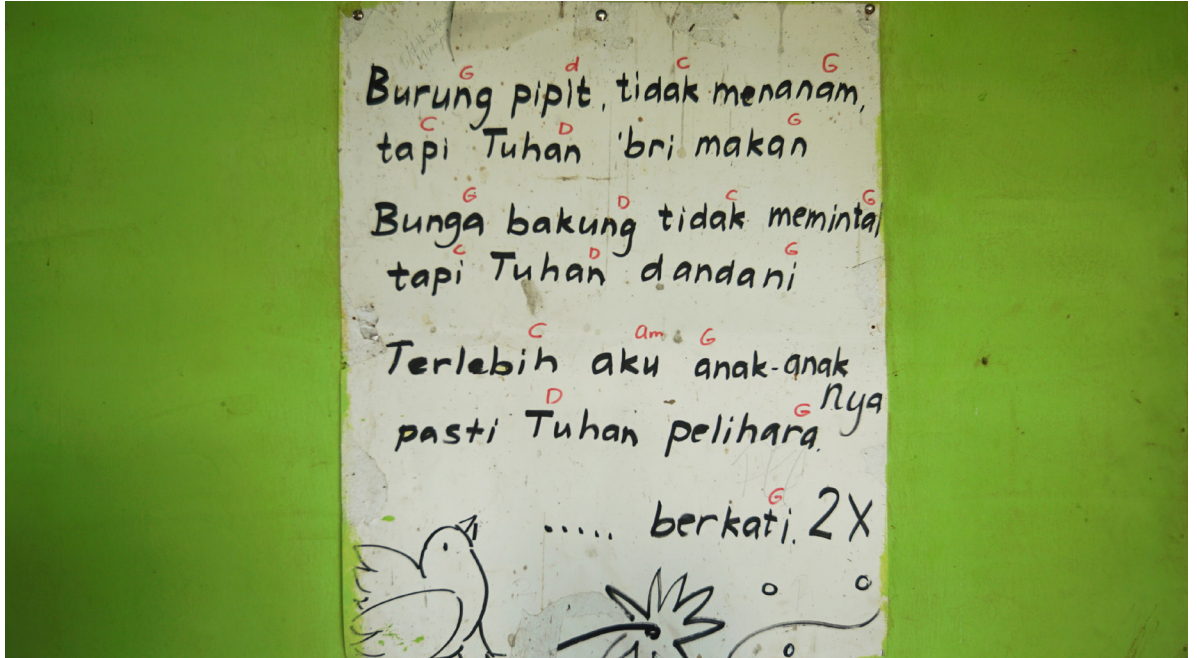 G d C G
Burung pipit, tidak menanam,
C D G
tapi Tuhan 'bri makan
G D C G
Bunga bakung tidak memintal
C D G
tapi Tuhan dandani
C am G
Terlebih aku anak-anak
nya
D G
pasti Tuhan pelihara.
G
..... berkati. 2X